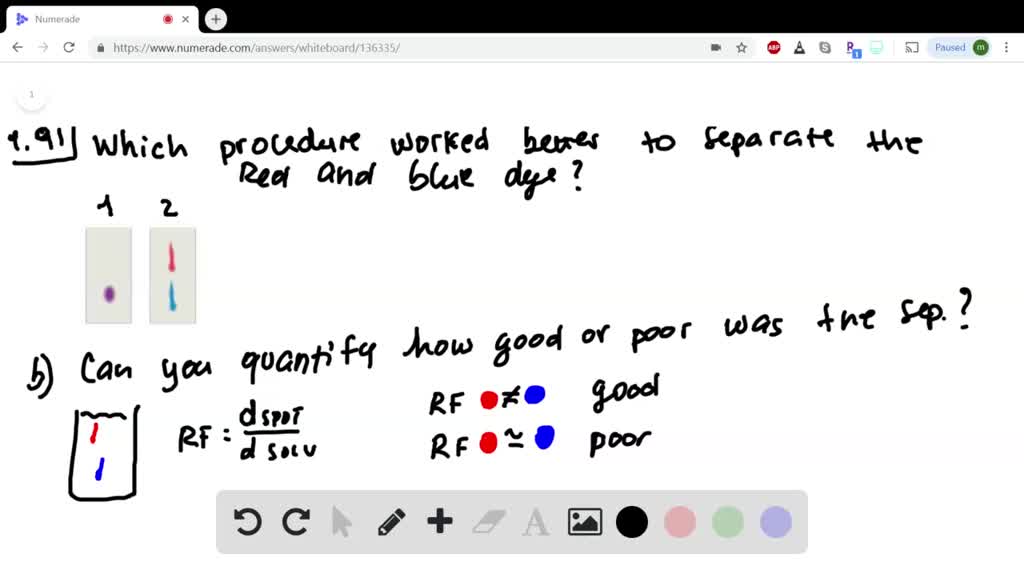 Numerade
https://www.numerade.com/answers/whiteboard/136335/
ABP
R
1
Paused
m
1
1.91 Which procedure worked better to separate the
Red and blue dye?
1 2
b) Can you quantify how good or poor was the sep.?
RF = d SPOT / d SOLV
RF ≠ good
RF ≃ poor
A